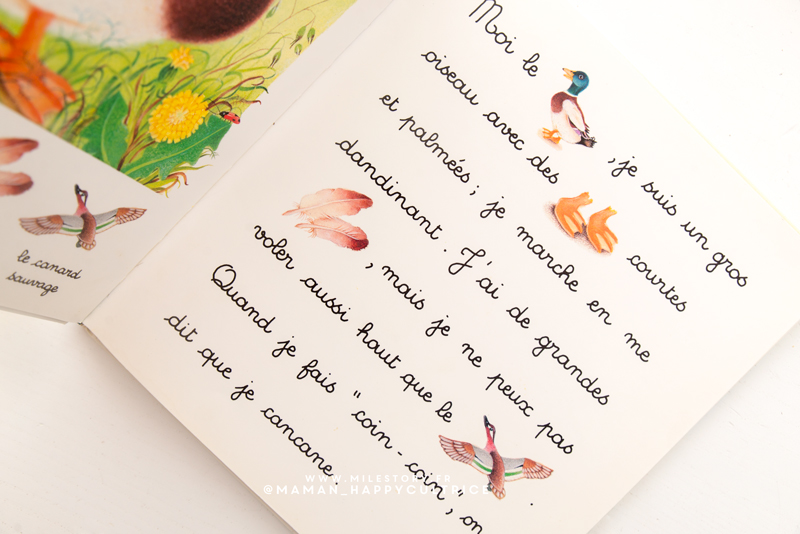 Moi le , je suis un gros
oiseau avec des courtes
et palmées ; je marche en me
dandinant. J'ai de grandes
, mais je ne peux pas
voler aussi haut que le .
Quand je fais "coin-coin", on
dit que je cancane.
le canard
sauvage
@MAMAN_HAPPYCULTRICE